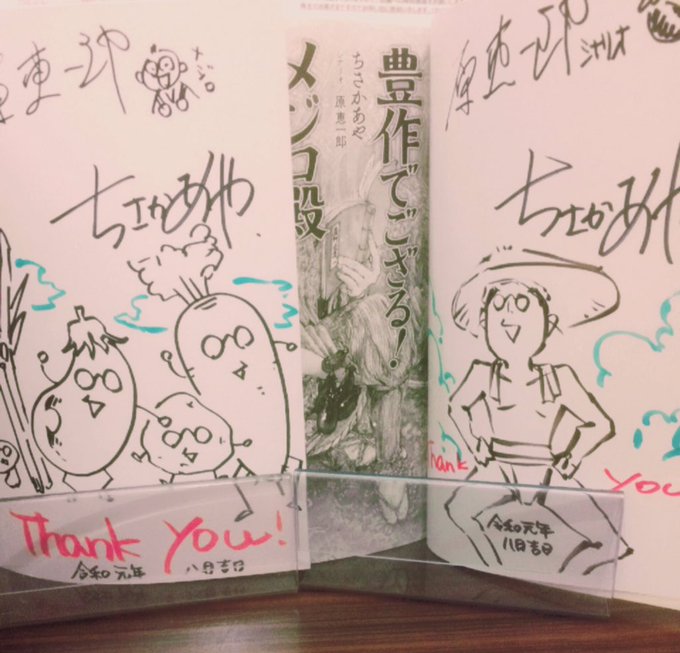 原恵一郎
メジロ
ちさかあや
Thank You!
令和元年 八月吉日
豊作でござる!
メジロ殿
ちさかあや
シナリオ 原恵一郎
原恵一郎
シナリオ
ちさかあや
Thank You
令和元年
八月吉日